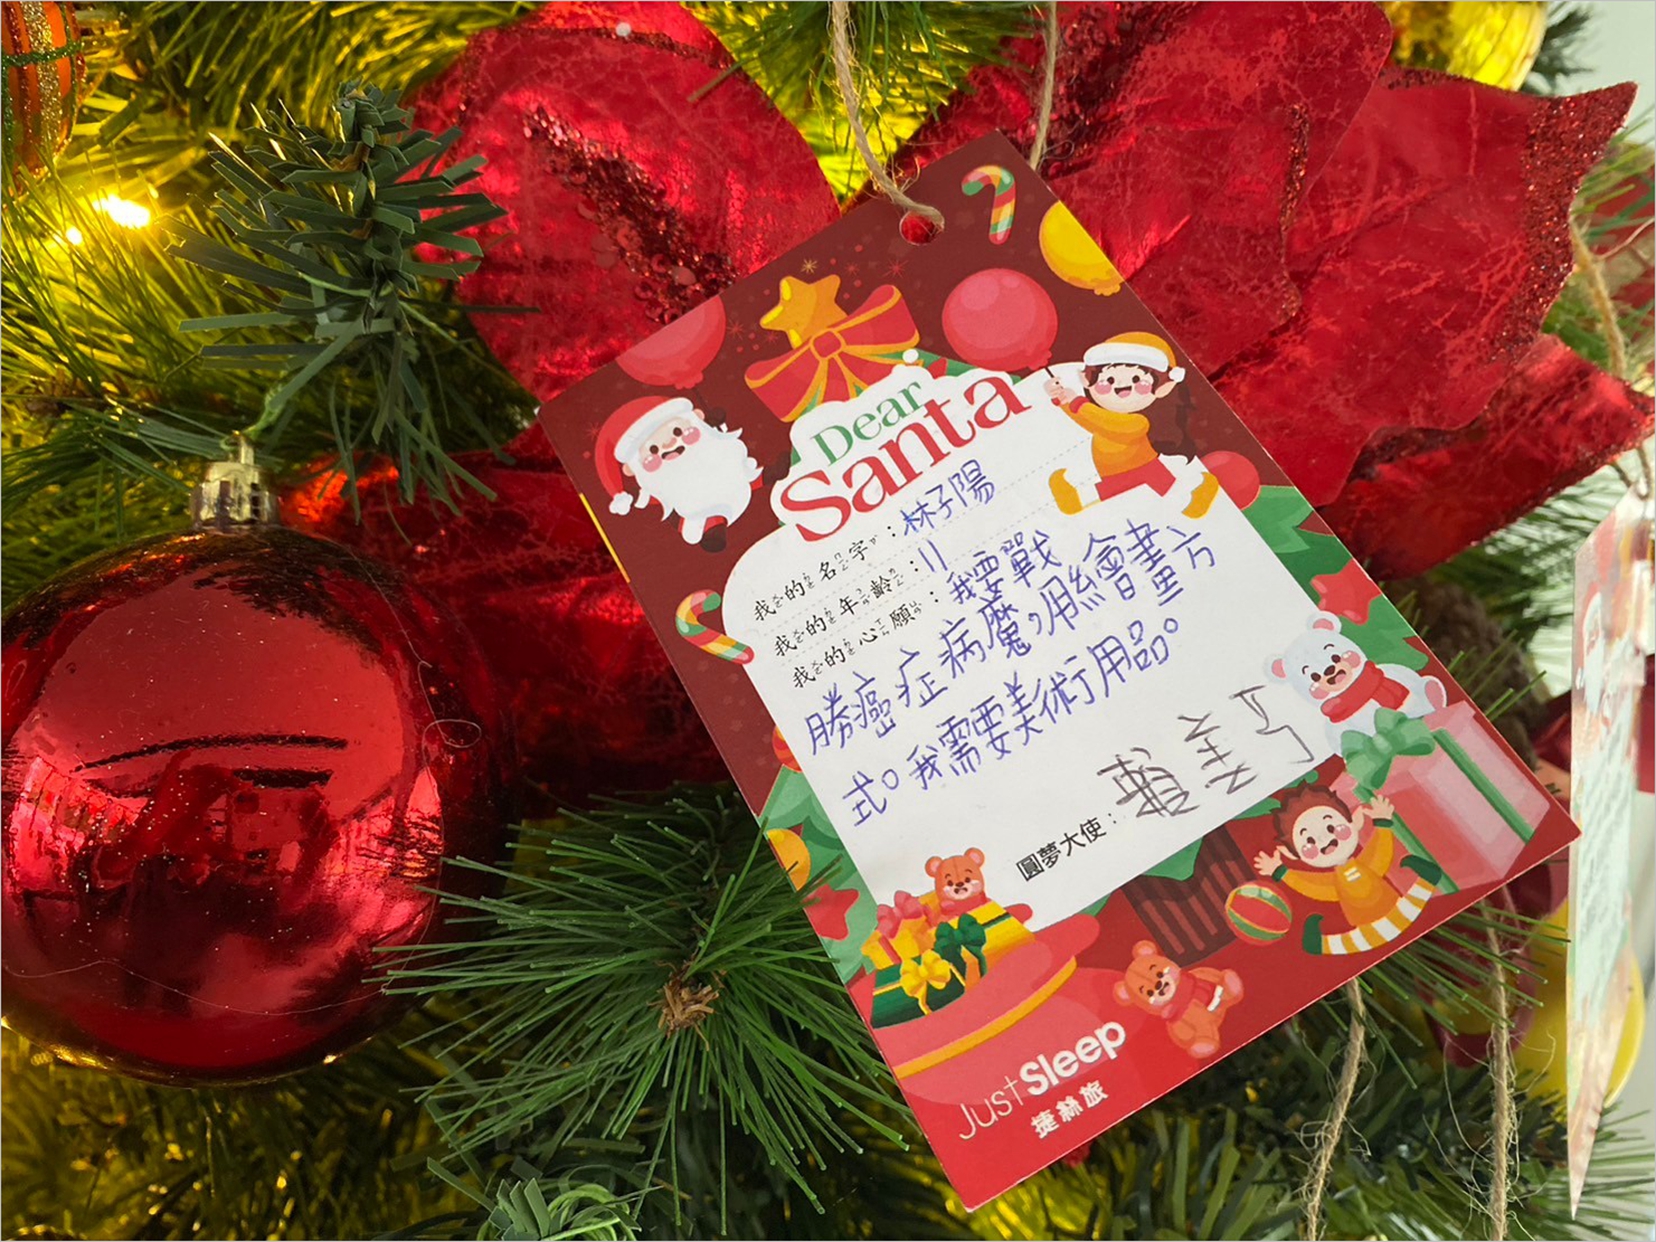 Dear
Santa
我的名字：林子陽
我的年齡：11
我的心願：我要戰
勝癌症病魔，用繪畫方
式。我需要美術用品。
圓夢大使：賴美
JustSleep
捷絲旅